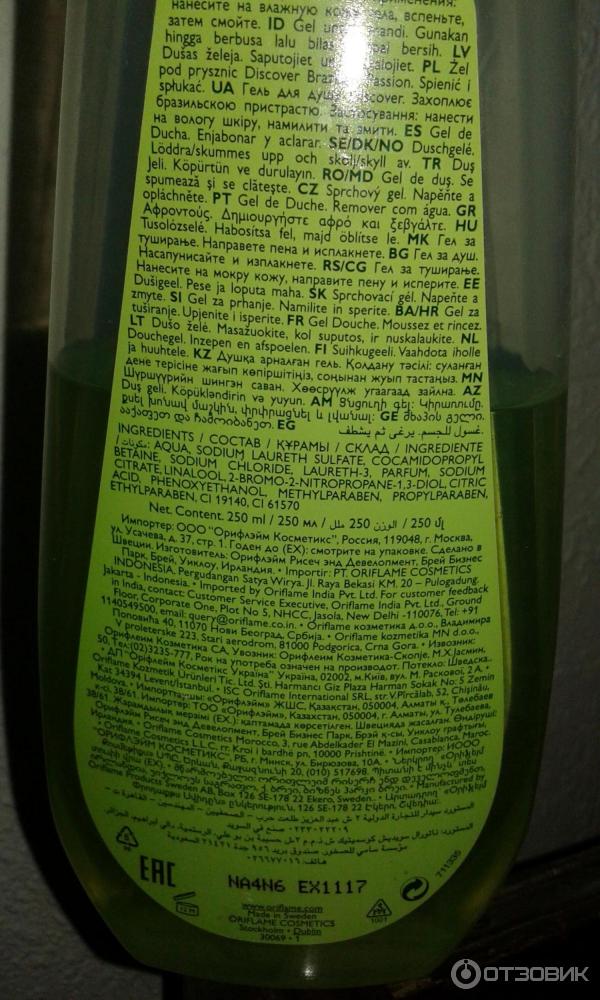 нанесите на влажную кожу тела, вспеньте,
затем смойте. ID Gel mandi. Gunakan
hingga berbusa lalu bilas bersih. LV
Dušas želeja. Saputojiet PL Żel
pod prysznic Discover Passion. Spienić i
spłukać. UA Гель для душу Discover. Захоплює
бразильською пристрастю. Застосування: нанести
на вологу шкіру, намилити та змити. ES Gel de
Ducha. Enjabonar y aclarar. SE/DK/NO Duschgelé.
Löddra/skummes upp och skölj/skyll av. TR Duş
Jeli. Köpürtün ve durulayın. RO/MD Gel de duş. Se
spumează şi se clăteşte. CZ Sprchový gel. Napěňte a
opláchněte. PT Gel de Duche. Remover com água. GR
Αφροντούς. Δημιουργήστε αφρό και ξεβγάλτε. HU
Tusolózselé. Habosítsa fel, majd öblítse le. MK Гел за
туширање. Направете пена и исплакнете. BG Гел за душ.
Насапунисайте и изплакнете. RS/CG Гел за туширање.
Нанесите на мокру кожу, направите пену и исперите. EE
Dušigeel. Pese ja loputa maha. SK Sprchovací gél. Napeňte a
zmyte. SI Gel za prhanje. Namilite in sperite. BA/HR Gel za
tuširanje. Upjenite i isperite. FR Gel Douche. Moussez et rincez.
LT Dušo želė. Masažuokite, kol suputos, ir nuskalaukite. NL
Douchegel. Inzepen en afspoelen. FI Suihkugeeli. Vaahdota iholle
ja huuhtele. KZ Душқа арналған гель. Қолдану тәсілі: суланған
дене терісіне жағып көпіршітіңіз, соңынан жуып тастаңыз. MN
Шүршүүрийн шингэн саван. Хөөсрүүлж угаагаад зайлна. AZ
Duş geli. Köpükləndirin və yuyun. AM Ցնցուղի գել: Կիրառումը.
GE შხაპის გელი.
ააქაფეთ და ჩამოიბანეთ. EG غسول للجسم. يرغى ثم يشطف.
INGREDIENTS / СОСТАВ / ҚҰРАМЫ / СКЛАД / INGREDIENTE
/ مكونات: AQUA, SODIUM LAURETH SULFATE, COCAMIDOPROPYL
BETAINE, SODIUM CHLORIDE, LAURETH-3, PARFUM, SODIUM
CITRATE, LINALOOL, 2-BROMO-2-NITROPROPANE-1,3-DIOL, CITRIC
ACID, PHENOXYETHANOL, METHYLPARABEN, PROPYLPARABEN,
ETHYLPARABEN, CI 19140, CI 61570
Net. Content. 250 ml / 250 мл / الوزن 250 ملل / 250 մլ
Импортер: ООО "Орифлэйм Косметикс", Россия, 119048, г. Москва,
ул. Усачева, д. 37, стр. 1. Годен до (EX): смотрите на упаковке. Сделано в
Швеции. Изготовитель: Орифлэйм Рисеч энд Девелопмент, Брей Бизнес
Парк, Брей, Уиклоу, Ирландия. • Importir: PT. ORIFLAME COSMETICS
INDONESIA, Pergudangan Satya Wirya. Jl. Raya Bekasi KM. 20 – Pulogadung.
Jakarta - Indonesia. • Imported by Oriflame India Pvt. Ltd. For customer feedback
in India, contact: Customer Service Executive, Oriflame India Pvt. Ltd., Ground
Floor, Corporate One, Plot No 5, NHCC, Jasola, New Delhi -110076, Tel: +91
1140549500, email: query@oriflame.co.in. • Oriflame козметика д.о.о., Владимира
Поповића 40, 11070 Нови Београд, Србија. • Oriflame kozmetika MN d.o.o.,
V proleterske 223, Stari aerodrom, 81000 Podgorica, Crna Gora. • Извозник:
Орифлейм Косметикс СА, Увозник: Орифлејм Козметикс-Скопје, М.Х.Јасмин,
50, Тел:(02)3235-777. Рок на употреба означен на производот. Потекло: Шведска..
• ДП "Оріфлейм Косметікс Україна" Україна, 02002, м.Київ, вул. М. Раскової, 2 А. •
Oriflame Kozmetik Ürünleri Tic. Ltd. Şti. Harmancı Giz Plaza Harman Sokak No: 5 Zemin
Kat 34394 Levent/İstanbul. • ISC Oriflame International SRL, str.V.Pîrcălab, 52, Chişinău,
Moldova. • Импорттаушы: «Орифлэйм» ЖШС, Қазақстан, 050004, Алматы қ., Төлебаев
к-сі, 38/61. Импортер: ТОО «Орифлэйм», Казахстан, 050004, г. Алматы, ул. Тулебаева,
38/61. Жарамдылық мерзімі (EX.): қаптамада көрсетілген. Швецияда жасалған. Өндіруші:
Орифлэйм Рисеч энд Девелопмент, Брей Бизнес Парк, Брэй қ-сы, Уиклоу графтығы,
Ирландия. • Oriflame Cosmetics Morocco, 3, rue Abdelkader El Mazini, Casablanca, Maroc.
• Oriflame Cosmetics L.L.C, rr. Kroi i bardhë pn, 10000 Prishtinë. • Импортер: ИООО
"ОРИФЛЭЙМ КОСМЕТИКС", РБ, г. Минск, ул. Бирюзова, 10А.
20, (010) 517698.
Manufactured by
Oriflame Products Sweden AB, Box 126 SE-178 22 Ekerö, Sweden.
EAC
12 M
NA4N6 EX1117
711335
1001
www.oriflame.com
Made in Sweden
ORIFLAME COSMETICS
Stockholm • Dublin
30069 • 1
ОТЗОВИК